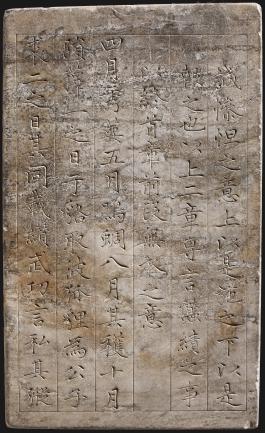 誠慘怛之意上以是施之下以是
報之也以上二章專言蠶績之事
以終首章前段無衣之意
四月秀葽五月鳴蜩八月其穫十月
隕蘀一之日于貉取彼狐狸為公子
裘二之日其同載纘武功言私其豵